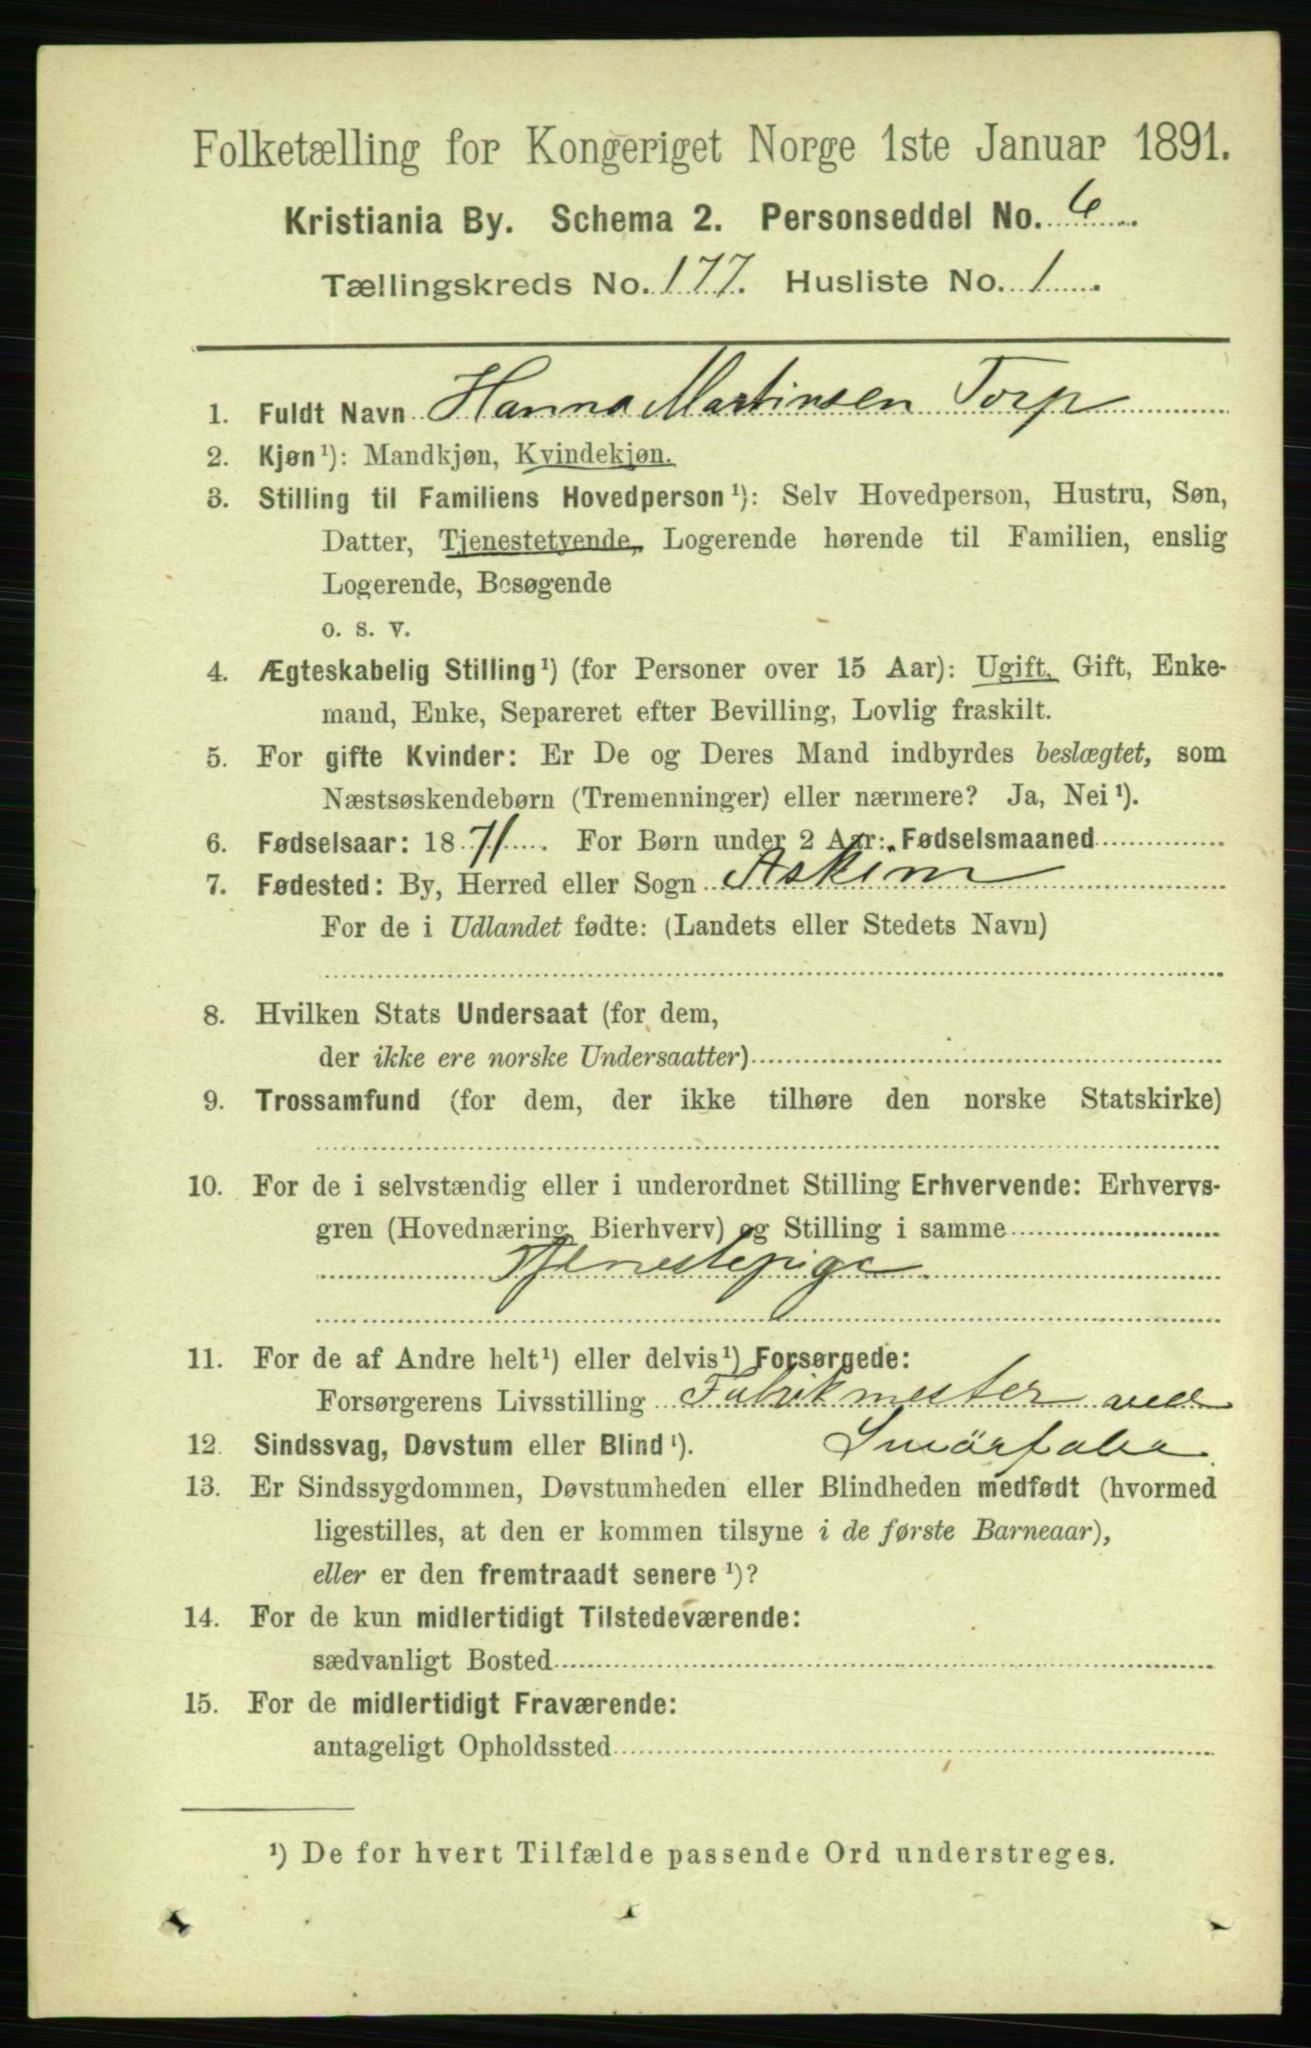 Folketælling for Kongeriget Norge 1ste Januar 1891.
Kristiania By. Schema 2. Personseddel No. 6
Tællingskreds No. 177. Husliste No. 1
1. Fuldt Navn Hanna Martinsen Torp
2. Kjøn¹): Mandkjøn, Kvindekjøn.
3. Stilling til Familiens Hovedperson¹): Selv Hovedperson, Hustru, Søn,
Datter, Tjenestetyende, Logerende hørende til Familien, enslig
Logerende, Besøgende
o. s. v.
4. Ægteskabelig Stilling¹) (for Personer over 15 Aar): Ugift, Gift, Enke-
mand, Enke, Separeret efter Bevilling, Lovlig fraskilt.
5. For gifte Kvinder: Er De og Deres Mand indbyrdes beslægtet, som
Næstsøskendebørn (Tremenninger) eller nærmere? Ja, Nei¹).
6. Fødselsaar: 1871. For Børn under 2 Aar: Fødselsmaaned
7. Fødested: By, Herred eller Sogn Askim
For de i Udlandet fødte: (Landets eller Stedets Navn)
8. Hvilken Stats Undersaat (for dem,
der ikke ere norske Undersaatter)
9. Trossamfund (for dem, der ikke tilhøre den norske Statskirke)
10. For de i selvstændig eller i underordnet Stilling Erhvervende: Erhvervs-
gren (Hovednæring, Bierhverv) og Stilling i samme
Tjenestepige
11. For de af Andre helt¹) eller delvis¹) Forsørgede:
Forsørgerens Livsstilling Fabrikmester ved
12. Sindssvag, Døvstum eller Blind¹). Smörfabr.
13. Er Sindssygdommen, Døvstumheden eller Blindheden medfødt (hvormed
ligestilles, at den er kommen tilsyne i de første Barneaar),
eller er den fremtraadt senere¹)?
14. For de kun midlertidigt Tilstedeværende:
sædvanligt Bosted
15. For de midlertidigt Fraværende:
antageligt Opholdssted
¹) De for hvert Tilfælde passende Ord understreges.